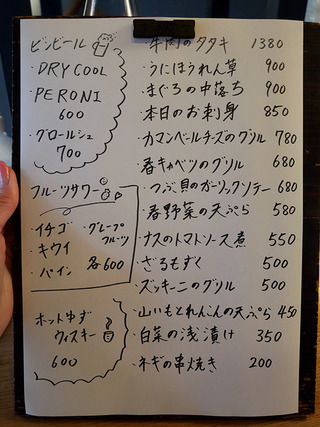 ビンビール
・DRY COOL
・PERONI
600
・グロールシュ
700
フルーツサワー
・イチゴ ・グレープフルーツ
・キウイ
・パイン 各600
ホットゆず
ウィスキー
600
・牛肉のタタキ 1380
・うにほうれん草 900
・まぐろの中落ち 900
・本日のお刺身 850
・カマンベールチーズのグリル 780
・春キャベツのグリル 680
・つぶ貝のガーリックソテー 680
・春野菜の天ぷら 580
・ナスのトマトソース煮 550
・ざるもずく 500
・ズッキーニのグリル 500
・山いもとれんこんの天ぷら 450
・白菜の浅漬け 350
・ネギの串焼き 200